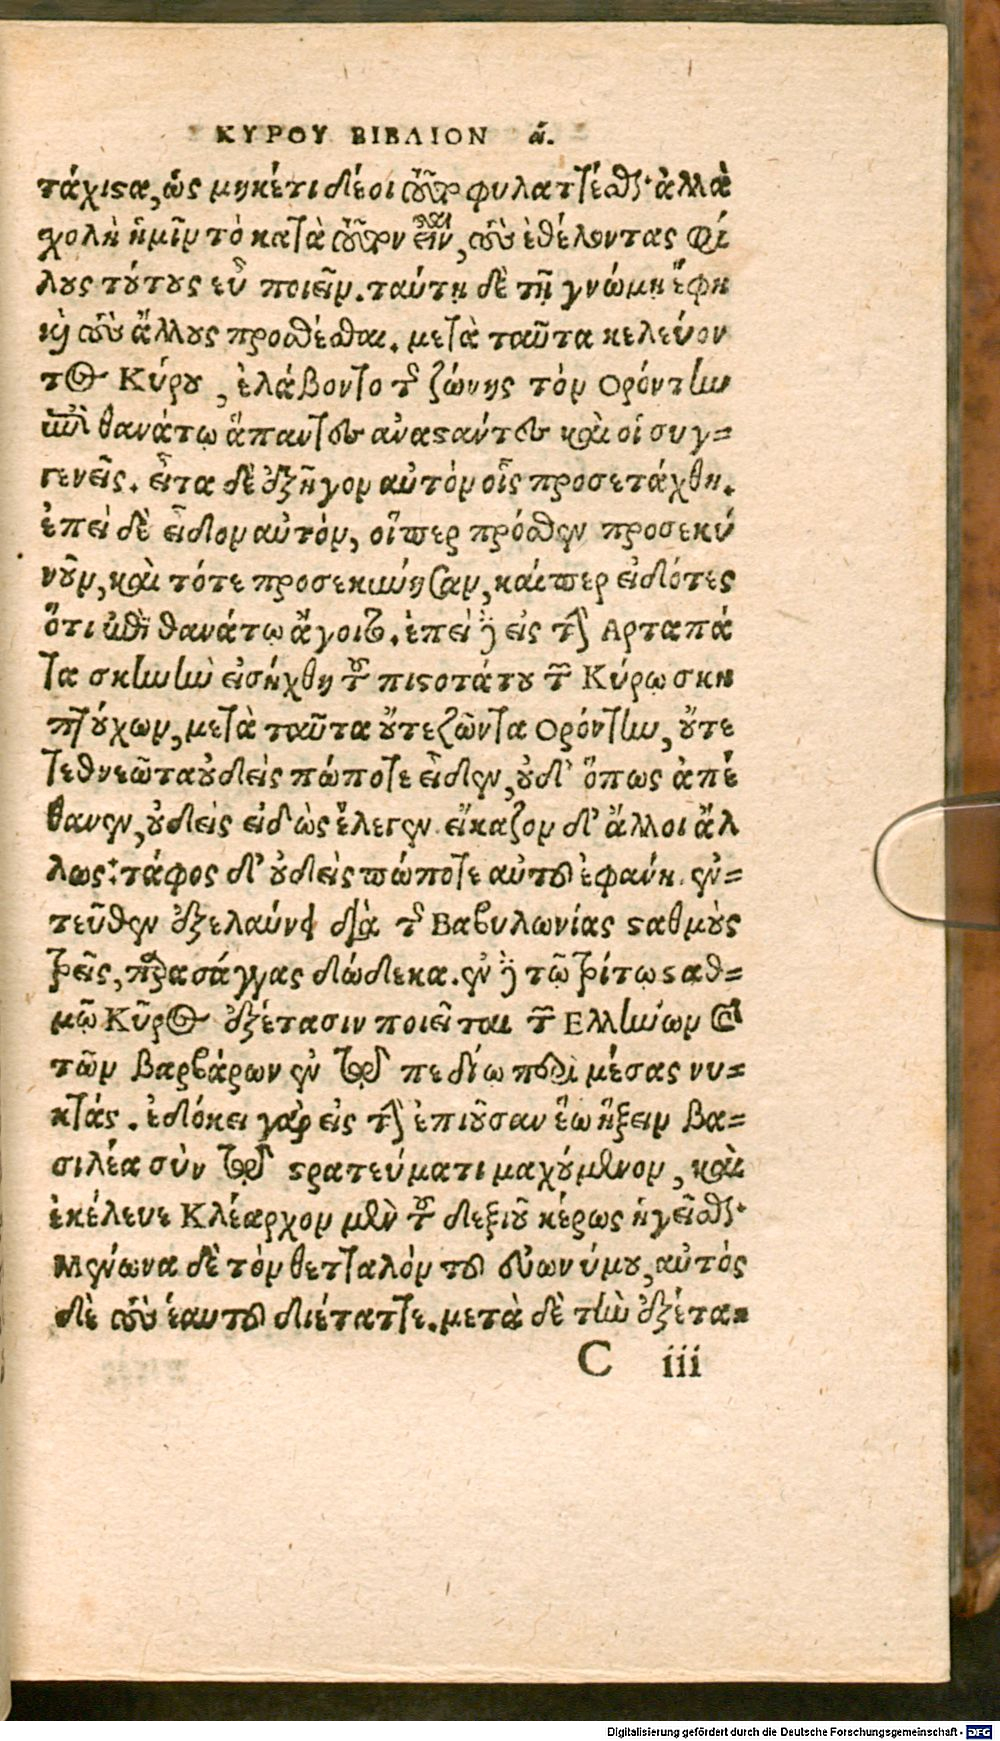 ΚΥΡΟΥ ΒΙΒΛΙΟΝ ά.
τάχιστα, ὡς μηκέτι δέοι τοῦτον φυλάττεσθαι· ἀλλὰ
σχολὴ ἡμῖν τὸ κατὰ τοῦτον εἶναι, τοὺς ἐθέλοντας φί
λους τούτους εὖ ποιεῖν. ταύτῃ δὲ τῇ γνώμῃ ἔφη
καὶ τοὺς ἄλλους προσθέσθαι. μετὰ ταῦτα κελεύον
τος Κύρου, ἐλάβοντο τῆς ζώνης τὸν Ορόντην
ἐπὶ θανάτῳ ἅπαντες ἀναστάντες καὶ οἱ συγ=
γενεῖς. εἶτα δὲ ἐξῆγον αὐτὸν οἷς προσετάχθη.
ἐπεὶ δὲ εἶδον αὐτὸν, οἵπερ πρόσθεν προσεκύ
νουν, καὶ τότε προσεκύνησαν, καίπερ εἰδότες
ὅτι ἐπὶ θανάτῳ ἄγοιτο. ἐπεὶ δὲ εἰς τὴν Αρταπά
τα σκηνὴν εἰσήχθη τοῦ πιστοτάτου τῶν Κύρῳ σκη
πτούχων, μετὰ ταῦτα οὔτε ζῶντα Ορόντην, οὔτε
τεθνεῶτα οὐδεὶς πώποτε εἶδεν, οὐδ' ὅπως ἀπέ
θανεν, οὐδεὶς εἰδὼς ἔλεγεν. εἴκαζον δ' ἄλλοι ἄλ
λως: τάφος δ' οὐδεὶς πώποτε αὐτοῦ ἐφάνη. ἐν=
τεῦθεν ἐξελαύνει διὰ τῆς Βαβυλωνίας σταθμοὺς
τρεῖς, παρασάγγας δώδεκα. ἐν δὲ τῷ τρίτῳ σταθ=
μῷ Κῦρος ἐξέτασιν ποιεῖται τῶν Ελλήνων καὶ
τῶν βαρβάρων ἐν τῷ πεδίῳ περὶ μέσας νύ=
κτας. ἐδόκει γὰρ εἰς τὴν ἐπιοῦσαν ἕω ἥξειν βα=
σιλέα σὺν τῷ στρατεύματι μαχούμενον, καὶ
ἐκέλευε Κλέαρχον μὲν τοῦ δεξιοῦ κέρως ἡγεῖσθαι·
Μένωνα δὲ τὸν θετταλὸν τοῦ εὐωνύμου, αὐτὸς
δὲ τοὺς ἑαυτοῦ διέταττε. μετὰ δὲ τὴν ἐξέτα=
C iii
Digitalisierung gefördert durch die Deutsche Forschungsgemeinschaft - DFG